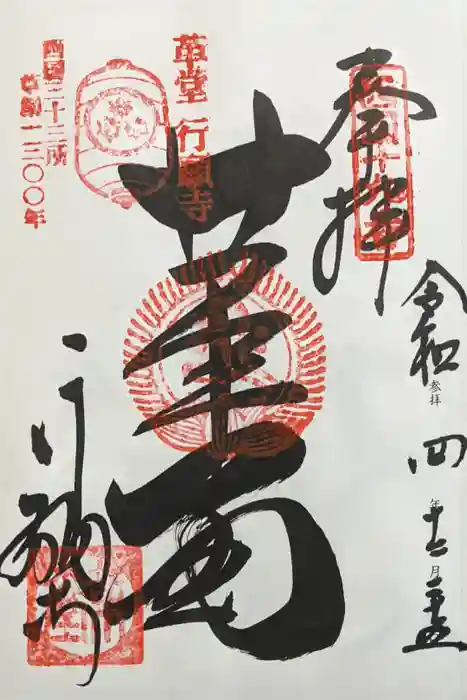 奉拝
令和四年十二月二十五
参拝
革堂
行願寺
革堂 行願寺
西国三十三所
草創一三〇〇年